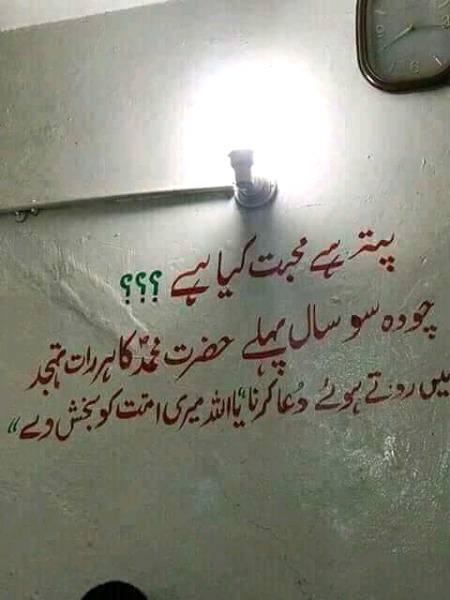 پتہ ہے محبت کیا ہے ؟؟؟
چودہ سو سال پہلے حضرت محمدؐ کا ہر رات تہجد
میں روتے ہوئے دُعا کرنا "یا اللہ میری امّت کو بخش دے"